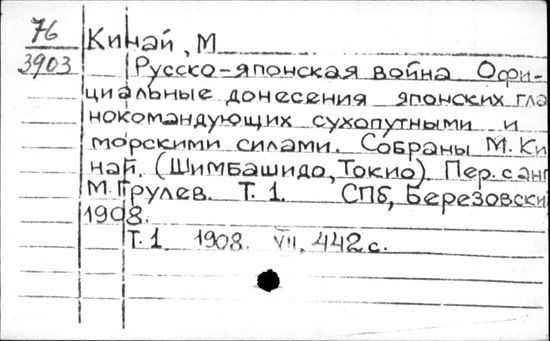 76
3903
Кинай, М
Русско-японская война Офи-
циальные донесения японских гла
нокомандующих сухопутными и
морскими силами. Собраны М. Ки
най. (Шимбашидо, Токио). Пер. с анг
М. Грулев. Т. 1. СПб, Березовски
1908.
Т. 1. 1908. VII, 442 с.